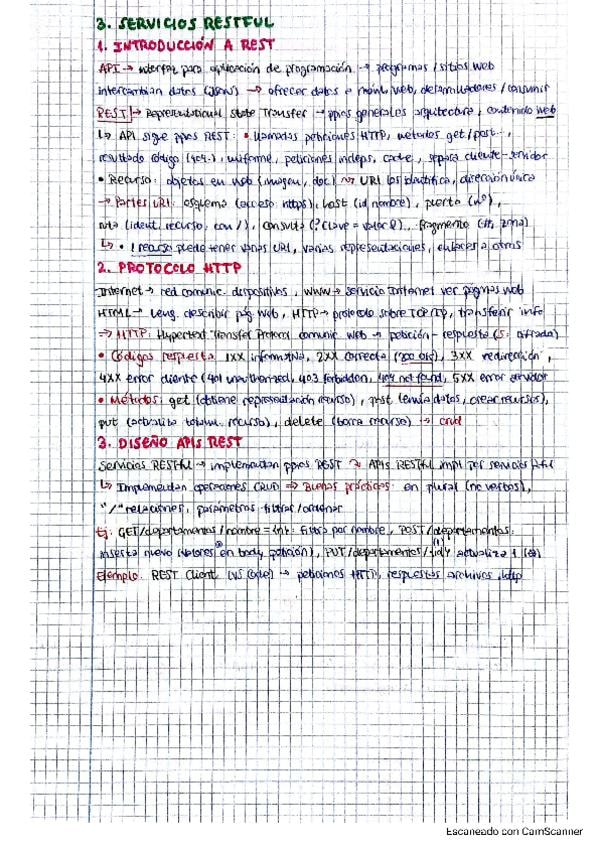 3. SERVICIOS RESTFUL
1. INTRODUCCIÓN A REST
API → interfaz para aplicación de programación → programas / sitios web
intercambian datos (JSON) → ofrecer datos a móvil, web, desarrolladores / consumir
REST → Representational State Transfer → ppios generales arquitectura, contenido web
↳ API sigue ppios REST: • llamadas peticiones HTTP, métodos get/post...,
resultado código (404..), uniforme, peticiones indeps, cache, separa cliente-servidor
• Recurso: objetos en web (imagen, doc) → URI los identifica, dirección única
→ Partes URI: esquema (acceso: https), host (id nombre), puerto (nº),
ruta (ident. recurso, con /), consulta (?clave = valor &), fragmento (#, zona)
↳ • 1 recurso puede tener varias URI, varias representaciones, enlaces a otros
2. PROTOCOLO HTTP
Internet → red comunic. dispositivos, WWW → servicio Internet ver páginas web
HTML → leng. describir pág web, HTTP → protocolo sobre TCP/IP, transferir info
⇒ HTTP: Hypertext Transfer Protocol comunic web → petición - respuesta (S: cifrada)
• Códigos respuesta 1XX informativa, 2XX correcta (200 OK), 3XX redirección,
4XX error cliente (401 unauthorized, 403 forbidden, 404 not found, 5XX error servidor
• Métodos: get (obtiene representación recurso), post (envía datos, crear recursos),
put (actualiza totalm. recurso), delete (borra recurso) → crud
3. DISEÑO APIS REST
Servicios RESTful → implementan ppios REST → APIs RESTful impl por servicios
↳ Implementan operaciones CRUD ⇒ Buenas prácticas: en plural (no verbos),
"/" relaciones, parámetros filtrar/ordenar
Ej: GET/departamentos/nombre={n}: filtra por nombre, POST/departamentos:
inserta nuevo (valores en body petición), PUT/departamentos/{id} actualiza 1
Ejemplo: REST Client (VS Code) → peticiones HTTP, respuestas archivos .http
Escaneado con CamScanner